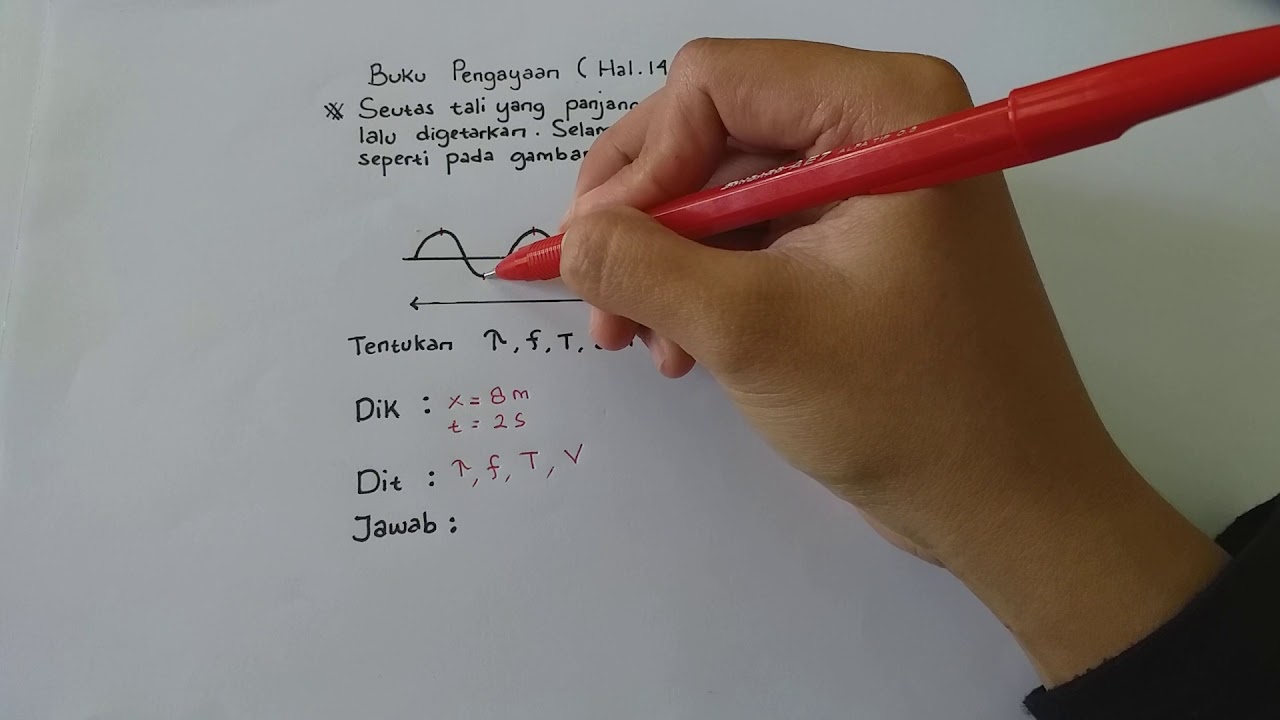 Buku Pengayaan (Hal. 14
※ Seutas tali yang panjang
lalu digetarkan. Selam
seperti pada gambar
Tentukan λ, f, T,
Dik : x = 8 m
t = 2 s
Dit : λ, f, T, V
Jawab :